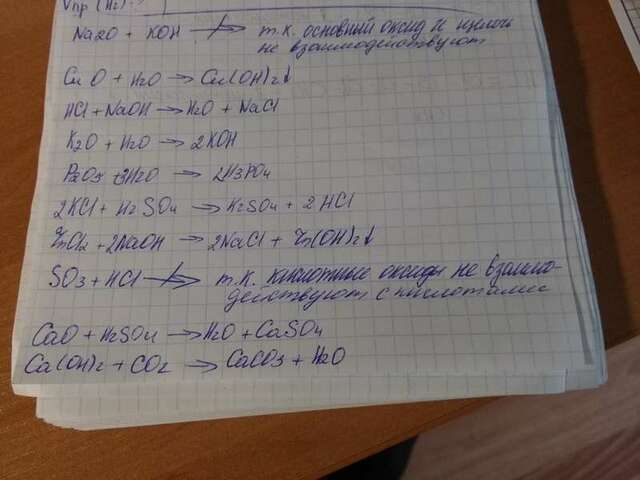 Vпр (H2)
Na2O + KOH ↛ т.к. основный оксид и щелочь
не взаимодействуют
CuO + H2O → Cu(OH)2↓
HCl + NaOH → H2O + NaCl
K2O + H2O → 2KOH
P2O5 + 3H2O → 2H3PO4
2KCl + H2SO4 → K2SO4 + 2HCl
ZnCl2 + 2NaOH → 2NaCl + Zn(OH)2↓
SO3 + HCl ↛ т.к. кислотные оксиды не взаимо-
действуют с кислотами
CaO + H2SO4 → H2O + CaSO4
Ca(OH)2 + CO2 → CaCO3 + H2O